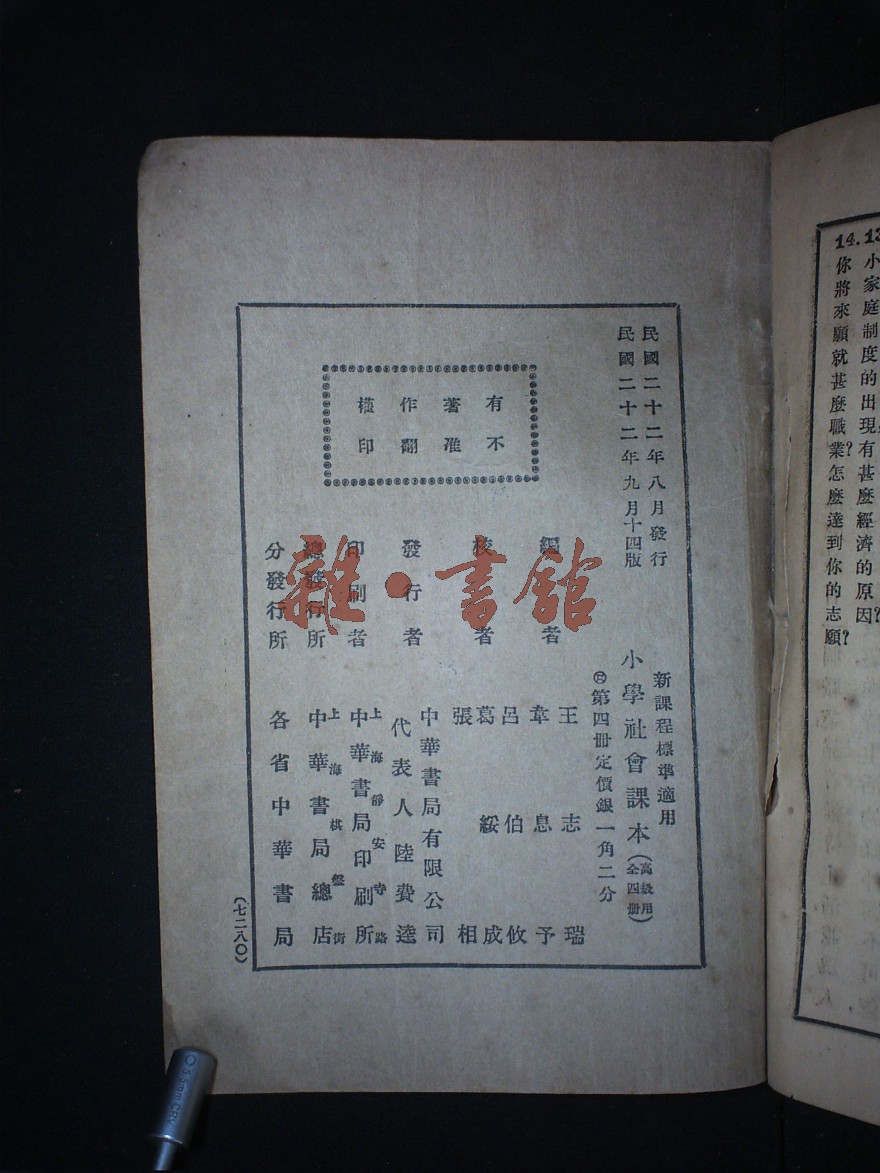 14.13
小家庭制度的出現,有甚麼經濟的原因?
你將來願就甚麼職業?怎麼達到你的志願?
民國二十二年八月發行
民國二十二年九月十四版
有著作權
不准翻印
新課程標準適用
小學社會課本(高級用全四冊)
第四冊定價銀一角二分
編者
王志瑞
韋息予
校者
呂伯攸
葛綏成
張相
發行者
中華書局有限公司
代表人陸費逵
印刷者
上海靜安寺路
中華書局印刷所
總發行所
上海棋盤街
中華書局總店
分發行所
各省中華書局
(七二八〇)
雜·書館
0.5mm